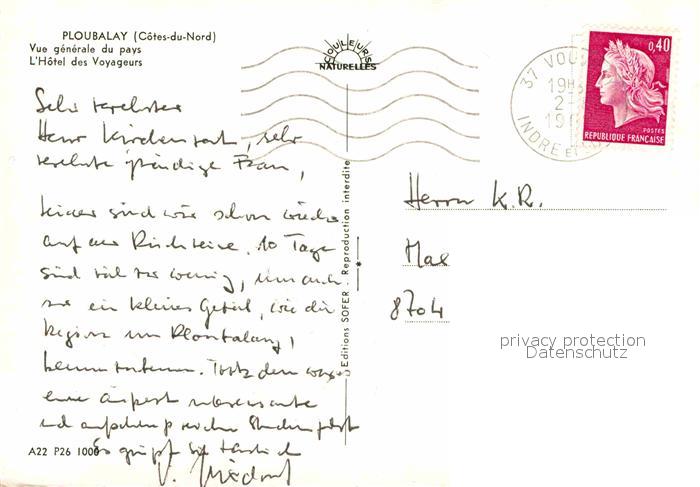 PLOUBALAY (Côtes-du-Nord)
Vue générale du pays
L'Hôtel des Voyageurs
COULEURS
NATURELLES
0,40
POSTES
REPUBLIQUE FRANÇAISE
37 VOUV
19H
2-
19
INDRE ET
Sehr verehrter
Herr Kirchenrat, sehr
verehrte gnädige Frau,
leider sind wir schon wieder
auf der Rückreise. 10 Tage
sind viel zu wenig, um auch
nur ein kleines Gebiet, wie die
Region um Ploubalay,
kennenzulernen. Trotzdem war
eine äusserst interessante
und
Es grüsst Sie herzlich
Editions SOFER. Reproduction interdite
Herrn K.R.
Max
8704
privacy protection
Datenschutz
A22 P26 1000